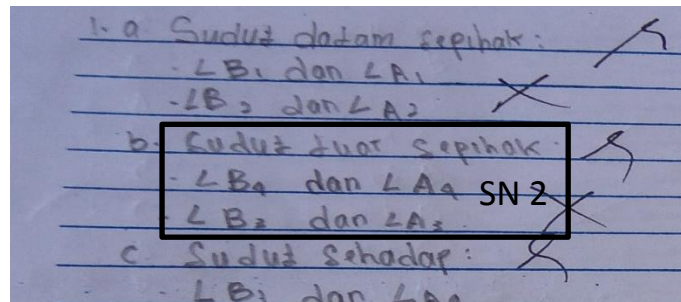 1. a Sudut dalam sepihak :
- ∠B₁ dan ∠A₁
- ∠B₂ dan ∠A₂
b. Sudut luar sepihak :
- ∠B₄ dan ∠A₄ SN 2
- ∠B₃ dan ∠A₃
c Sudut Sehadap :
- ∠B₁ dan ∠A₄